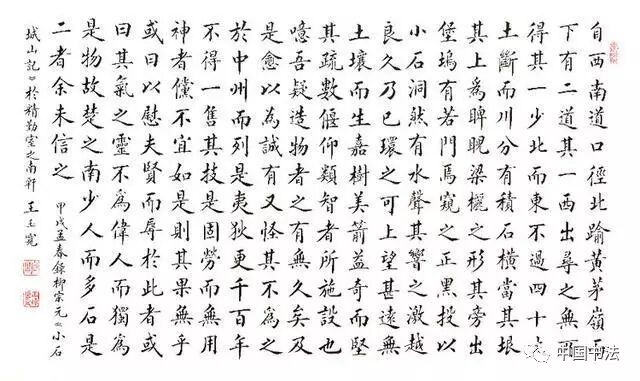 自西南道口徑北踰黃茅嶺而
下有二道其一西出尋之無所
得其一少北而東不過四十丈
土斷而川分有積石橫當其垠
其上爲睥睨梁欐之形其旁出
堡塢有若門焉窺之正黑投以
小石洞然有水聲其響之激越
良久乃已環之可上望甚遠無
土壤而生嘉樹美箭益奇而堅
其疏數偃仰類智者所施設也
噫吾疑造物者之有無久矣及
是愈以為誠有又怪其不為之
於中州而列是夷狄更千百年
不得一售其技是固勞而無用
神者儻不宜如是則其果無乎
或曰以慰夫賢而辱於此者或
曰其氣之靈不為偉人而獨為
是物故楚之南少人而多石是
二者余未信之
甲戌孟春錄柳宗元《小石
城山記》於精勤室之南軒 王玉寬
中国书法